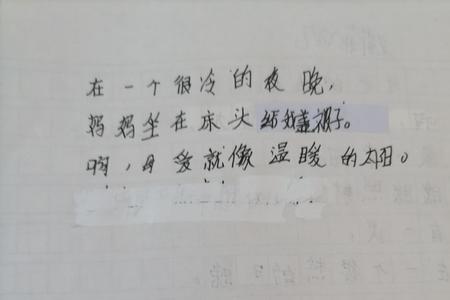 在一个很冷的夜晚,
妈妈坐在床头给我盖被子。
啊,母爱就像温暖的太阳。